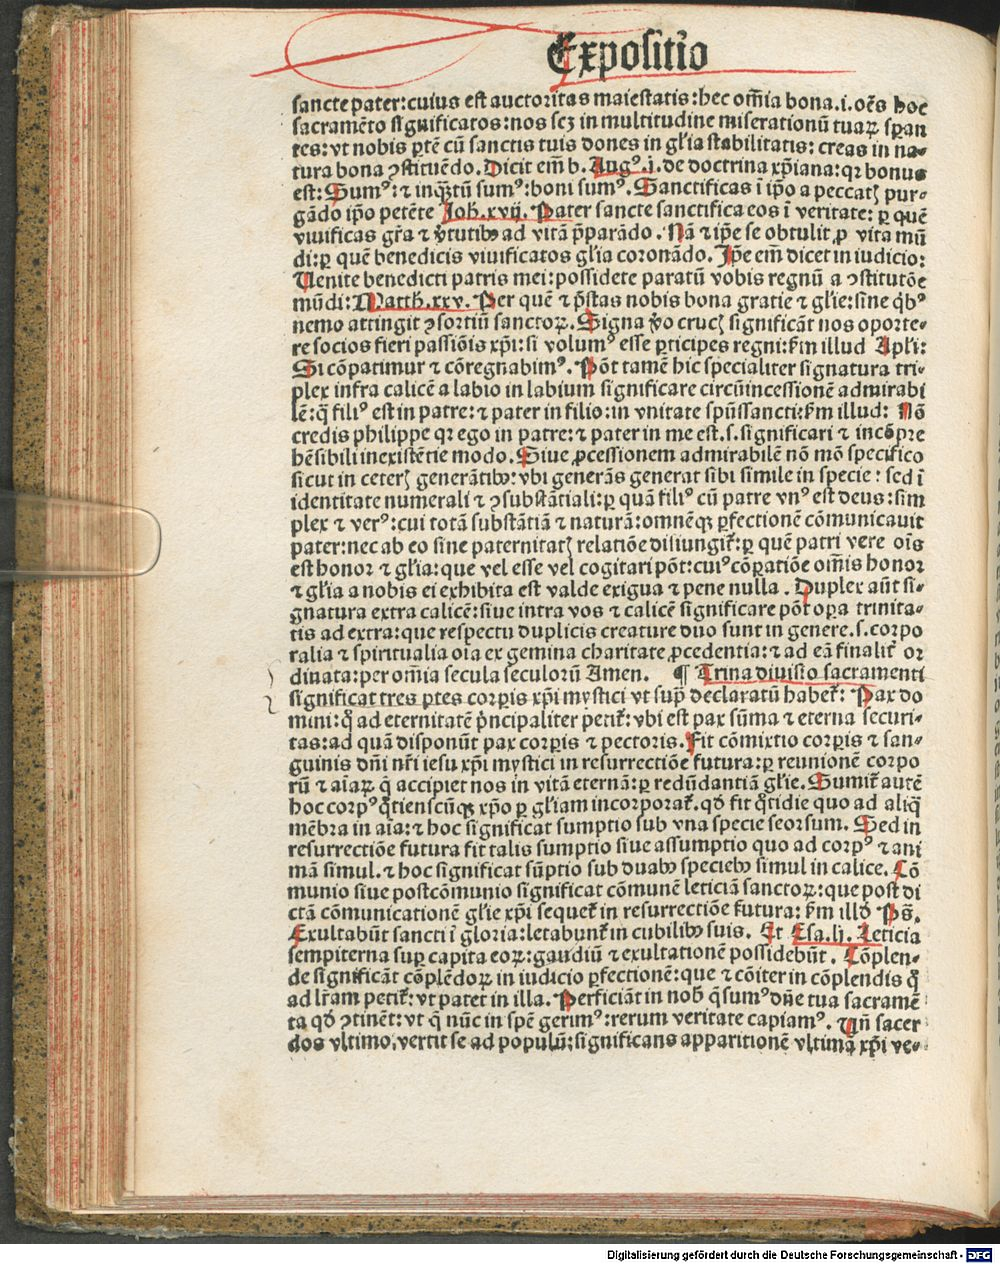 Expositio
sancte pater: cuius est auctoritas maiestatis: hec om̄ia bona .i. oēs hoc
sacramēto significatos: nos scꝫ in multitudine miserationū tuaꝝ speran
tes: vt nobis ꝑtē cū sanctis tuis dones in gl̄ia stabilitatis: creas in na⸗
tura bona ꝯstituēdo. Dicit em̄ b. Augꝰ .i. de doctrina xp̄iana: qꝛ bonus
est: Sumꝰ: ⁊ inqͣꝫtū sumꝰ: boni sumꝰ. Sanctificas ī ip̄o a peccatꝭ pur⸗
gādo ip̄o petēte Joh. xvij. Pater sancte sanctifica eos ī veritate: ꝑ quē
viuificas gr̄a ⁊ v̓tutibꝰ ad vitā p̄parādo. Nā ⁊ ip̄e se obtulit ꝓ vita mū
di: ꝑ quē benedicis viuificatos gl̄ia coronādo. Ip̄e em̄ dicet in iudicio:
Venite benedicti patris mei: possidete paratū vobis regnū a ꝯstitutōe
mūdi: Matth. xxv. Per quē ⁊ p̄stas nobis bona gratie ⁊ gl̄ie: sine qͥbꝰ
nemo attingit ꝯsortiū sanctoꝝ. Signa v̓o crucꝭ significāt nos oporte⸗
re socios fieri passiōis xp̄i: si volumꝰ esse ꝑticipes regni: ẜm illud Apl̄i:
Si cōpatimur ⁊ cōregnabimꝰ. Pōt tamē hic specialiter signatura tri⸗
plex infra calicē a labio in labium significare circūincessionē admirabi
lē: qͣ filiꝰ est in patre: ⁊ pater in filio: in vnitate sp̄ussancti: ẜm illud: Nō
credis philippe qꝛ ego in patre: ⁊ pater in me est .s. significari ⁊ incōpre
hēsibili inexistētie modo. Siue ꝓcessionem admirabilē nō mō specifico
sicut in ceterꝭ generātibꝰ: vbi generās generat sibi simile in specie: sed ī
identitate numerali ⁊ ꝯsubstātiali: ꝑ quā filiꝰ cū patre vnꝰ est deus: sim
plex ⁊ verꝰ: cui totā substātiā ⁊ naturā: omnēqꝫ ꝑfectionē cōmunicauit
pater: nec ab eo sine paternitatꝭ relatiōe disiungit᷑: ꝑ quē patri vere oīs
est honor ⁊ gl̄ia: que vel esse vel cogitari pōt: cuiꝰ cōparatiōe om̄is honor
⁊ gl̄ia a nobis ei exhibita est valde exigua ⁊ pene nulla. Duplex aūt si⸗
gnatura extra calicē: siue intra vos ⁊ calicē significare pōt oꝑa trinita⸗
tis ad extra: que respectu duplicis creature duo sunt in genere .s. corpo
ralia ⁊ spiritualia oīa ex gemina charitate ꝓcedentia: ⁊ ad eā finalit̓ or
dinata: per om̄ia secula seculorū Amen. ¶ Trina diuisio sacramenti
significat tres ꝑtes corꝑis xp̄i mystici vt supͣ declaratū habet᷑: Pax do
mini: qͥ ad eternitatē pͥncipaliter petit᷑: vbi est pax sūma ⁊ eterna securi⸗
tas: ad quā disponūt pax corꝑis ⁊ pectoris. Fit cōmixtio corꝑis ⁊ san⸗
guinis dn̄i nr̄i iesu xp̄i mystici in resurrectiōe futura: ꝑ reunionē corpo
rū ⁊ aīaꝝ qͥ accipiet nos in vitā eternā: ꝑ redūdantiā gl̄ie. Sumit᷑ autē
hoc corpꝰ qͦtienscūqꝫ xp̄o ꝑ gl̄iam incorporat᷑. qd̓ fit qͦtidie quo ad aliqͣ
mēbra in aīa: ⁊ hoc significat sumptio sub vna specie seorsum. Sed in
resurrectiōe futura fit talis sumptio siue assumptio quo ad corpꝰ ⁊ ani
mā simul. ⁊ hoc significat sūptio sub duabꝰ speciebꝰ simul in calice. Cō
munio siue postcōmunio significat cōmunē leticiā sanctoꝝ: que post di
ctā cōmunicationē gl̄ie xp̄i sequet᷑ in resurrectiōe futura: ẜm illd̓ Ps̄.
Exultabūt sancti ī gloria: letabunt᷑ in cubilibꝰ suis. Et Esa. lj. Leticia
sempiterna suꝑ capita eoꝝ: gaudiū ⁊ exultationē possidebūt. Cōplen⸗
de significāt cōplēdoꝝ in iudicio ꝑfectionē: que ⁊ cōiter in cōplendis qͥ
ad lr̄am petit᷑: vt patet in illa. Perficiāt in nob̓ qͣsumꝰ dn̄e tua sacramē
ta qd̓ ꝯtinēt: vt qͣ nūc in spē gerimꝰ: rerum veritate capiamꝰ. Vn̄ sacer
dos vltimo, vertit se ad populū: significans apparitionē vltimā xp̄i ve⸗
Digitalisierung gefördert durch die Deutsche Forschungsgemeinschaft - DFG